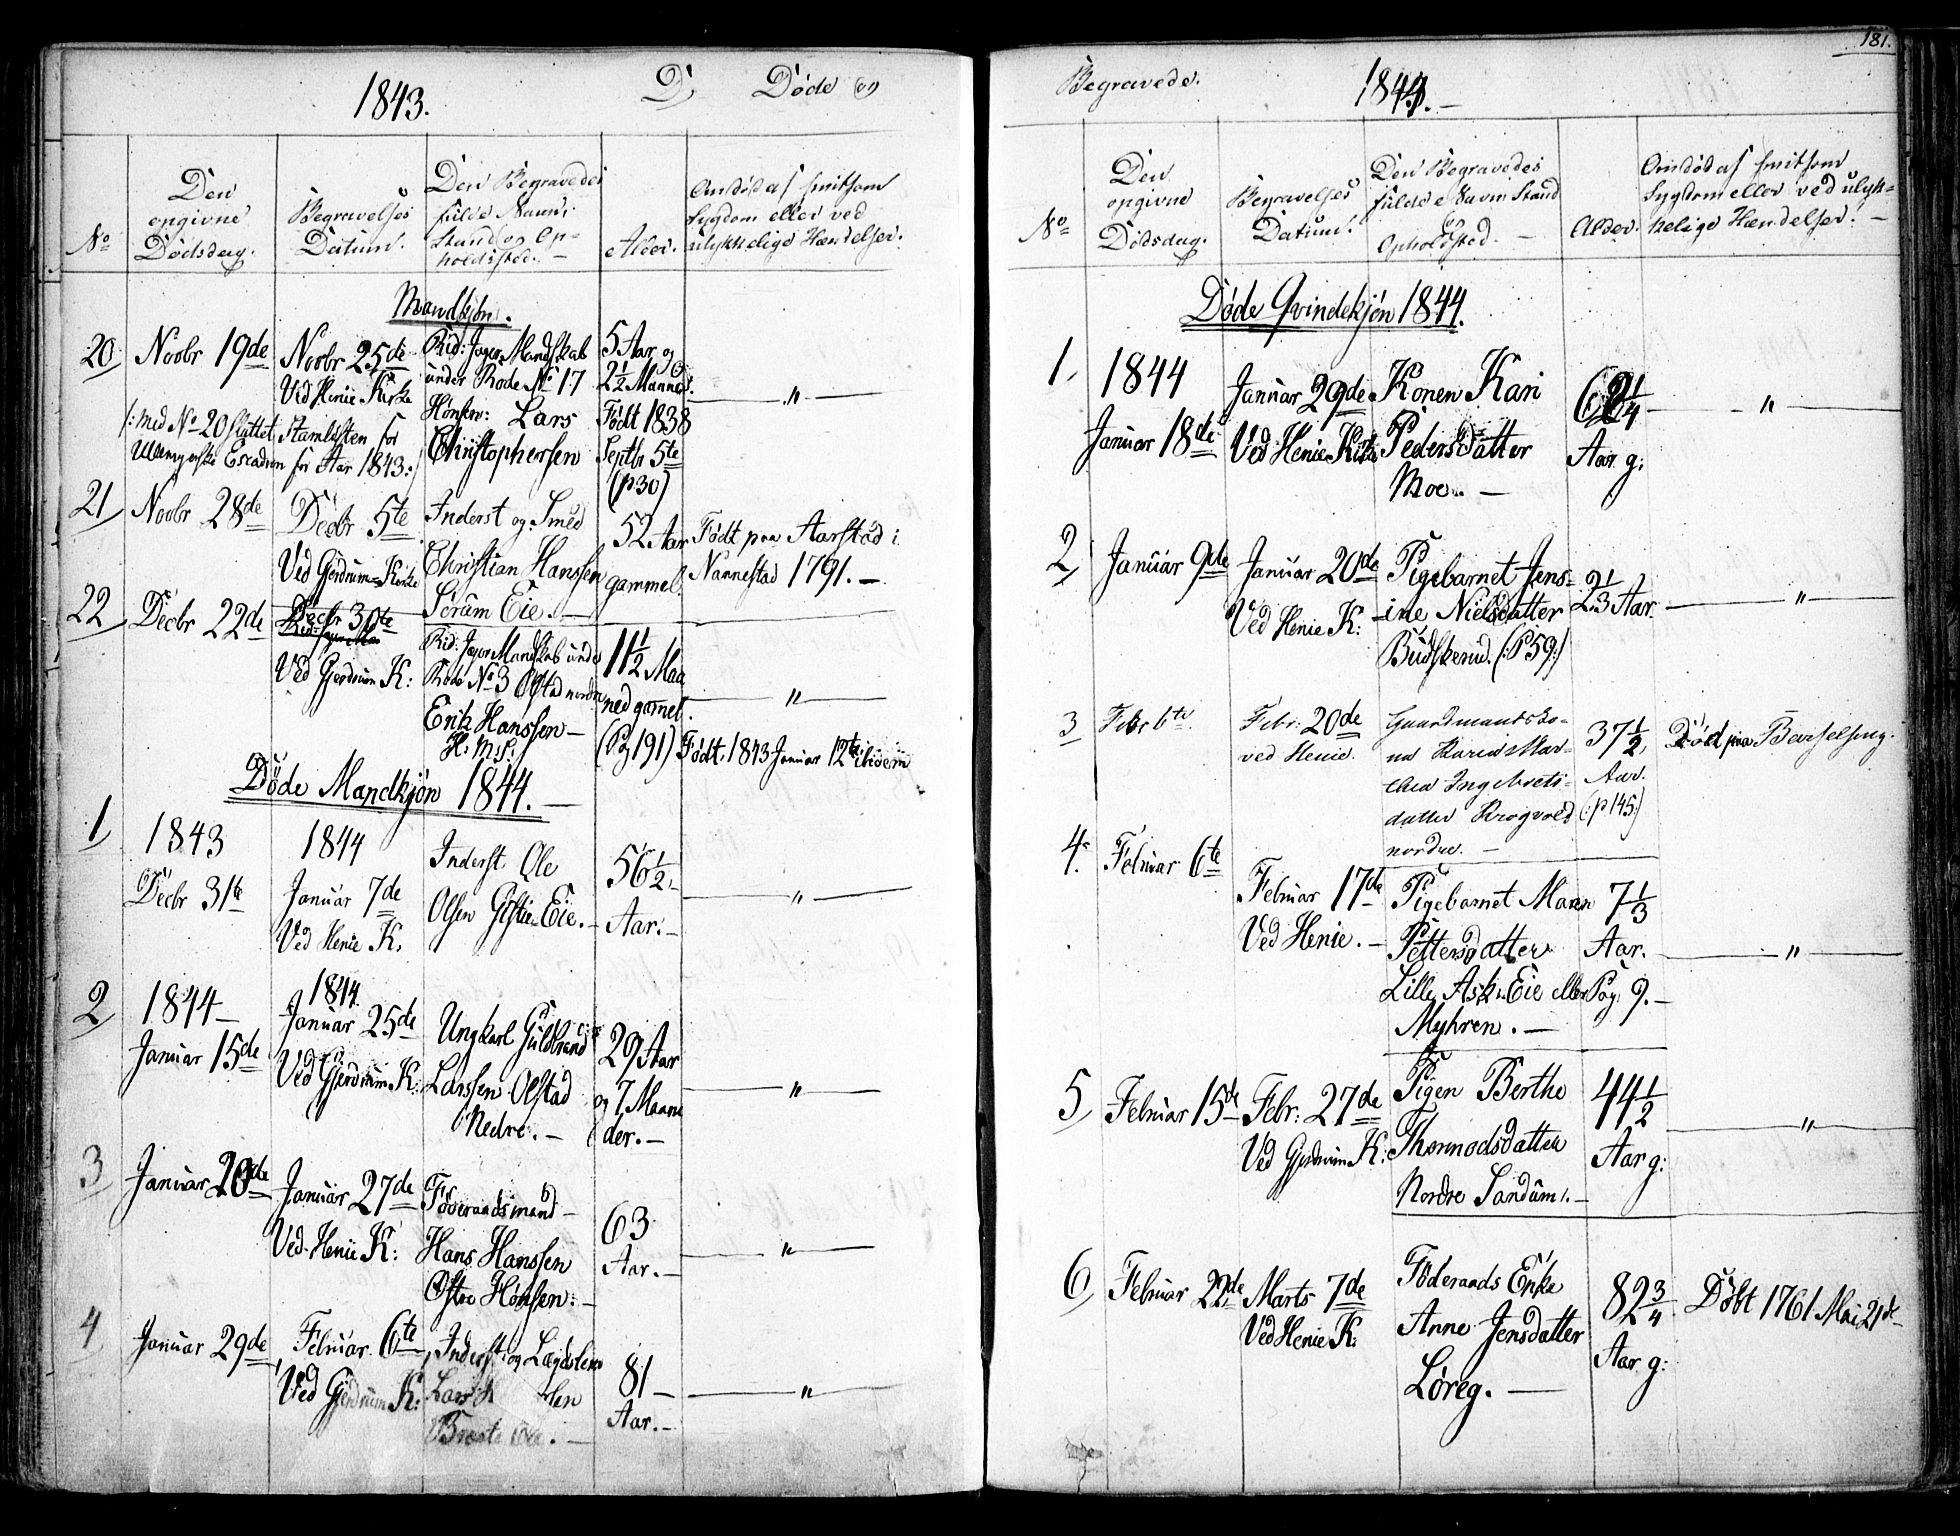 1843.
D, Døde og
No
Den
opgivne
Dødsdag.
Begravelses
Datum.
Den Begravedes
fulde Navn,
Stand og Op-
holdssted. —
Alder.
Om død af smitsom
Sygdom eller ved
ulykkelige Hændelser.
Mandkjøn.
20,
Novbr 19de
Novbr 25de
Ved Henie Kirke
Rid: Jæger Mandskab
under Rode No 17
Hønsen: Lars
Christophersen
5 Aar og
2 1/2 Maaned.
Født 1838
Septbr 5te
(p 30)
— „ —
/: Med No 20 sluttet Stamlisten for
Escadron for Aar 1843 :/
21,
Novbr 28de
Decbr 5te
Ved Gjerdrum Kirke
Inderst og Smed
Christian Hanssen
Sørum Eie. —
52 Aar
gammel.
Født paa Aarstad i
Nannestad 1791. —
22,
Decbr 22de
Decbr 30te
Ved Gjerdrum K:
Rid: Jæger Mandskab under
Rode No 3 Olstad nordre
Erik Hanssen —
11 1/2 Maa
ned gamel.
(Pag 191)
— „ —
Født 1843 Januar 12te
Døde Mandkjøn 1844. —
1,
1843
Decbr 31te
1844
Januar 7de
Ved Henie K.
Inderst Ole
Olsen Gistie Eie. —
56 1/2
Aar. —
— „ —
2,
1844 —
Januar 15de
1844.
Januar 25de
Ved Gjerdrum K:
Ungkarl Guldbrand
Larssen Olstad
Nedre. —
29 Aar
og 7 Maane
der. —
— „ —
3,
Januar 20de
Januar 27de
Ved Henie K:
Føderaadsmand —
Hans Hanssen
Østre Hønsen: —
63
Aar. —
— „ —
4,
Januar 29de
Februar 6te
Ved Gjerdrum K:
Inderst og Lægdslem
Lars
81 —
Aar. —
— „ —
181.
Begravede.
1844. —
No
Den
opgivne
Dødsdag.
Begravelses
Datum.
Den Begravedes
fulde Navn Stand
og
Opholdssted. —
Alder.
Om død af smitsom
Sygdom eller ved ulyk-
kelige Hændelser. —
Døde Qvindekjøn 1844.
1,
1844
Januar 18de
Januar 29de
Ved Henie Kirke
Konen Kari
Pedersdatter
Moe. —
Aar g:
— „ —
2,
Januar 9de
Januar 20de
Ved Henie K:
Pigebarnet Jens-
ine Nielsdatter
Budskerud. (: P 59 :)
2 1/3 Aar.
— „ —
3
Febr 6te
Febr: 20de
ved Henie.
Gaardmandsko-
na Karen Mar-
thea Ingebrets-
datter Krogvold
nordre. —
37 1/2,
Aar.
(: p 145 :)
Død paa Barselseng.
4.
Februar 6te
Februar 17de
Ved Henie. —
Pigebarnet Maren
Pettersdatter
Lille Ask Eie eller
Myhren. —
7 1/3
Aar.
Pag: 9. —
— „ —
5,
Februar 15de
Febr: 27de
Ved Gjerdrum K:
Pigen Berthe
Thormodsdatter
Nordre Sandum. —
44 1/2
Aar g:
— „ —
6,
Februar 22de
Marts 7de
Ved Henie K:
Føderaads Enke
Anne Jensdatter
Løreg. —
82 3/4
Aar g:
Døbt 1761 Mai 21de